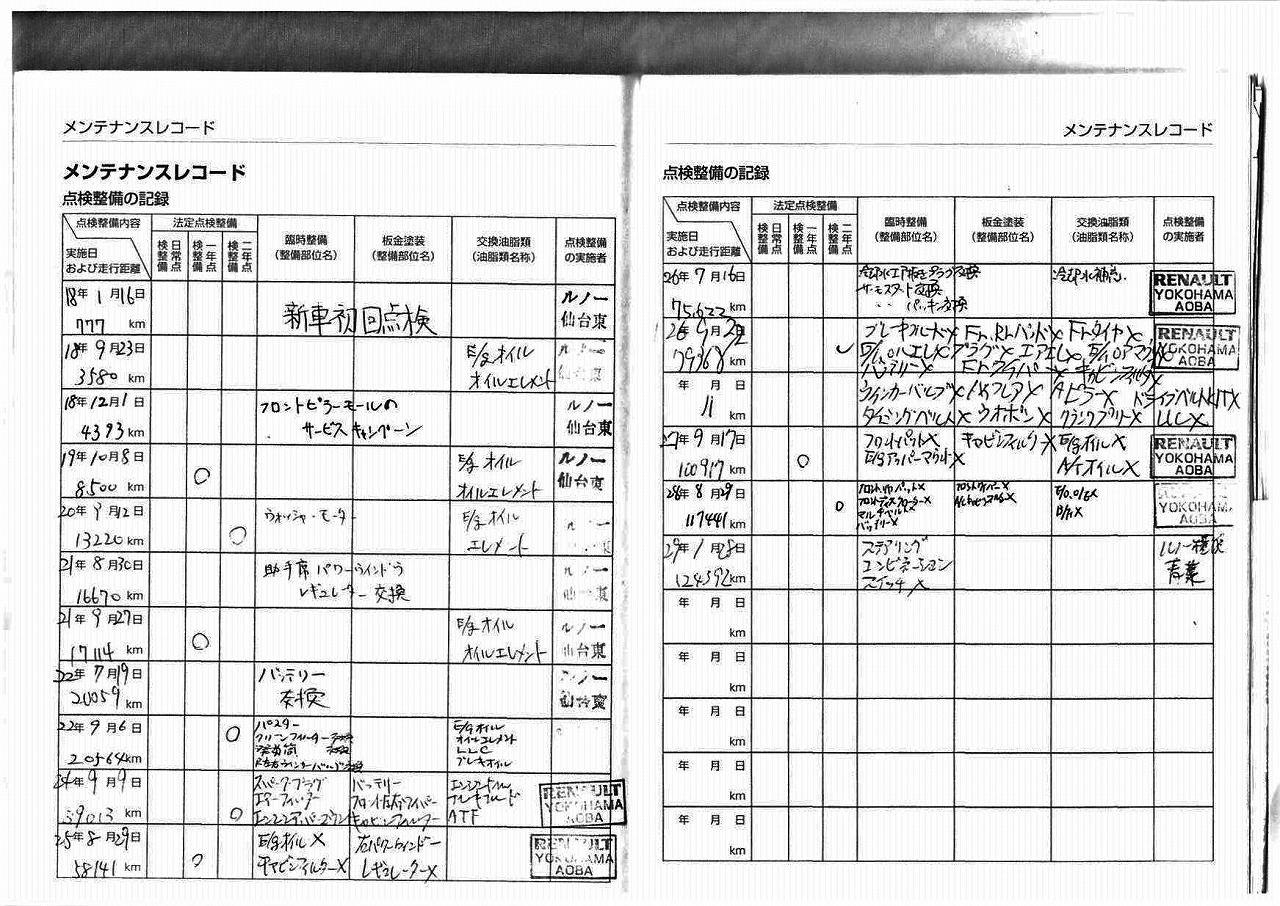 メンテナンスレコード
メンテナンスレコード
点検整備の記録
点検整備内容
実施日
および走行距離
法定点検整備
日常点検整備
一年点検整備
二年点検整備
臨時整備
(整備部位名)
板金塗装
(整備部位名)
交換油脂類
(油脂類名称)
点検整備
の実施者
18年 1月16日
777 km
新車初回点検
ルノー
仙台東
18年 9月23日
3580 km
E/g オイル
オイルエレメント
ルノー
仙台東
18年12月1日
4393 km
フロントピラーモールの
サービスキャンペーン
ルノー
仙台東
19年10月8日
8500 km
○
E/g オイル
オイルエレメント
ルノー
仙台東
20年 9月12日
13220 km
○
ウォッシャーモーター
E/g オイル
エレメント
21年 8月30日
16670 km
助手席パワーウインドウ
レギュレーター交換
ルノー
仙台東
21年 9月27日
17114 km
○
E/g オイル
オイルエレメント
ルノー
仙台東
22年 7月19日
20059 km
バッテリー
交換
仙台東
22年 9月6日
20564km
○
クリーンフィルター
E/g オイル
オイルエレメント
LLC
ブレーキオイル
24年 9月9日
39013 km
○
スパークプラグ
エアーフィルター
バッテリー
フロント左右ワイパー
キャビンフィルター
エンジンオイル
ブレーキフルード
ATF
RENAULT
YOKOHAMA
AOBA
25年 8月29日
58141 km
○
E/gオイルX
キャビンフィルターX
左パワーウィンドー
レギュレーターX
RENAULT
YOKOHAMA
AOBA
メンテナンスレコード
点検整備の記録
点検整備内容
実施日
および走行距離
法定点検整備
日常点検整備
一年点検整備
二年点検整備
臨時整備
(整備部位名)
板金塗装
(整備部位名)
交換油脂類
(油脂類名称)
点検整備
の実施者
26年 7月16日
75,622 km
冷却水エア抜きプラグ交換
サーモスタート交換
〃 パッキン交換
冷却水補充.
RENAULT
YOKOHAMA
AOBA
26年 9月 日
79368 km
ブレーキフルードX Fr.Rrパッド Frタイヤ X
プラグX エアエレX
バッテリーX Frワイパー X キャビンフィルタX
RENAULT
YOKOHAMA
AOBA
年 月 日
〃 km
ウインカーバルブX Aピラー X ドライブベルトKITX
タイミングベルトX ウオポンX クランクプーリーX LLCX
27年 9月17日
100917 km
○
フロントパットX
E/gアッパーマウントX
キャビンフィルターX
E/gオイルX
A/TオイルX
RENAULT
YOKOHAMA
AOBA
28年 8月29日
117441 km
○
フロントディスクローターX
マルチベルトX
バッテリーX
フロントワイパーX
RENAULT
YOKOHAMA
AOBA
29年 1月28日
124592 km
ステアリング
コンビネーション
スイッチX
ルノー横浜
青葉
年 月 日
km
年 月 日
km
年 月 日
km
年 月 日
km
年 月 日
km